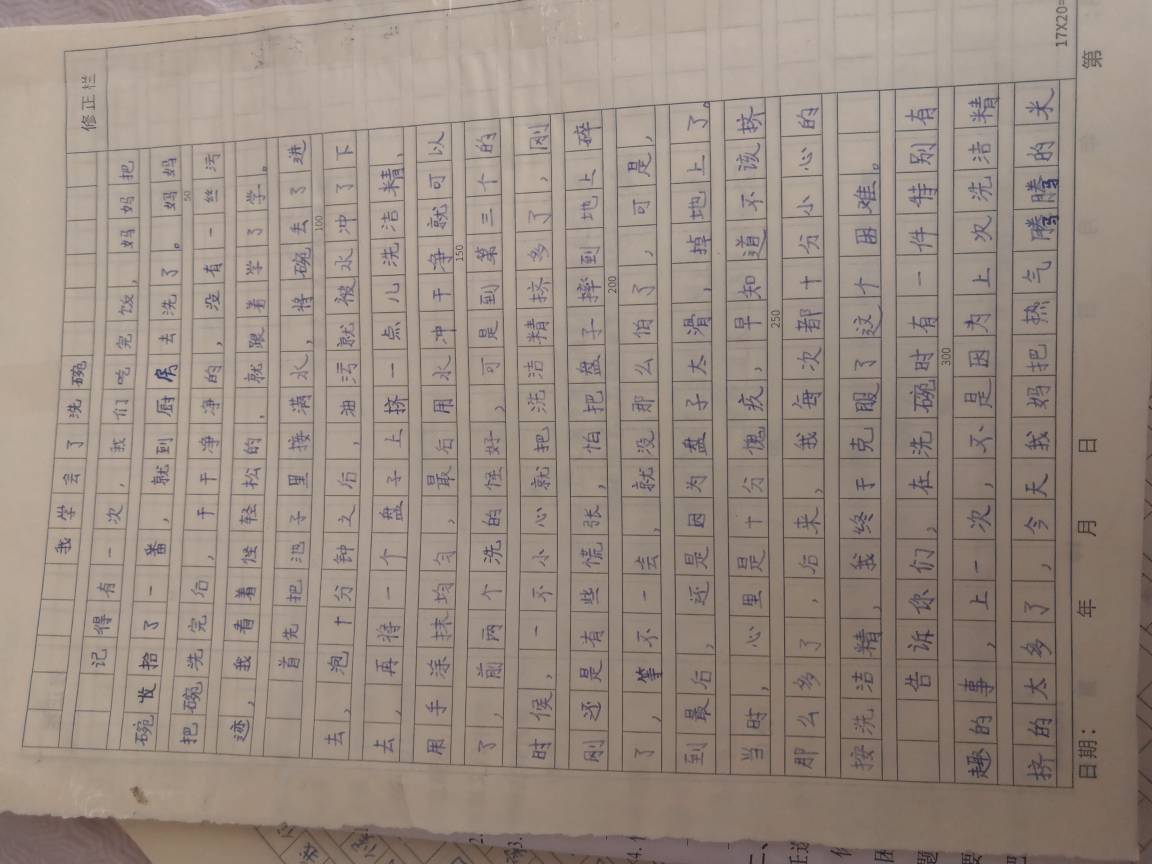 修正栏
我学会了洗碗
记得有一次，我们吃完饭，妈妈把
碗收拾了一番，就到厨房去洗了。妈妈
50
把碗洗完后，干干净净的，没有一丝污
迹，我看着怪轻松的，就跟着学了学。
首先把池子里接满水，将碗去了进
100
去，泡十分钟之后，油污就被水冲了下
去，再将一个盘子上挤一点儿洗洁精，
用手涂抹均匀，最后用水冲干净就可以
150
了，前两个洗的怪好，可是到第三个的
时候，一不小心就把洗洁精挤多了，刚
刚还是有些慌张，怕把盘子摔到地上碎
200
了，等不一去，就没那么怕了，可是，
到最后，还是因为盘子太滑，掉地上了。
当时，心里是十分愧疚，早知道不该挤
250
那么多了，后来，我每次都十分小心的
按洗洁精，我终于克服了这个困难。
告诉你们，在洗碗时有一件特别有
300
趣的事，上一次，不是因为上次洗洁精
挤的太多了，今天我妈把热气腾腾的米
17X20=
日期： 年 月 日 第